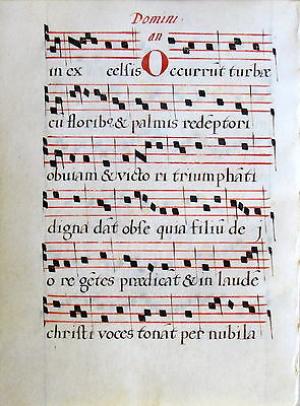 Domini
an
in ex celsis Occurrūt turbæ
cū floribꝰ & palmis redēptori
obuiam & victo ri triumphāti
digna dāt obse quia filiū de j
o re gētes prædicāt & in laudē
christi voces tonāt per nubila